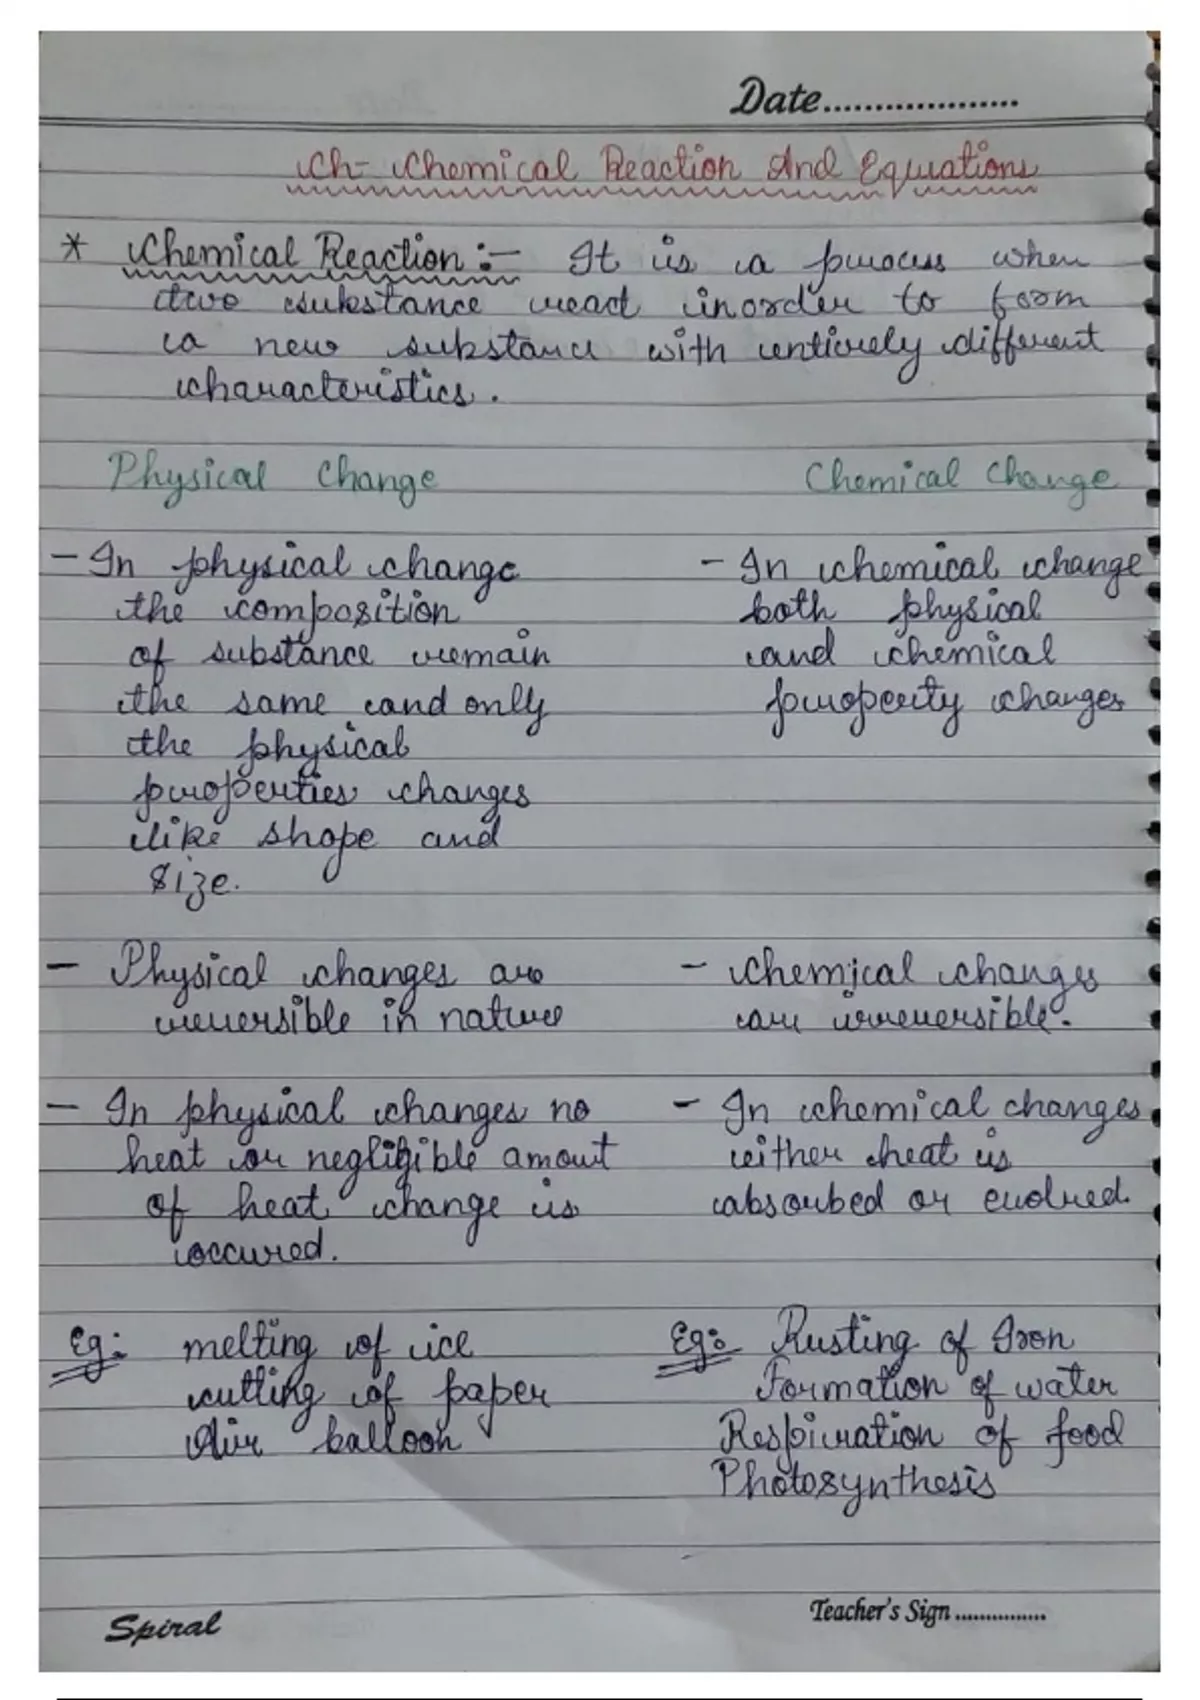 Date....................
Ch- Chemical Reaction And Equations
* Chemical Reaction :- It is a process when
two substance react inorder to form
a new substance with entirely different
characteristics.
Physical Change
- In physical change
the composition
of substance remain
the same and only
the physical
properties changes
like shape and
size.
- Physical changes are
reversible in nature
- In physical changes no
heat or negligible amout
of heat change is
occured.
Eg: melting of ice
cutting of paper
Air balloon
Chemical Change
- In chemical change
both physical
and chemical
property changes
- Chemical changes
are irreversible.
- In chemical changes
either heat is
absorbed or evolved.
Eg: Rusting of Iron
Formation of water
Respiration of food
Photosynthesis
Spiral
Teacher's Sign ...............